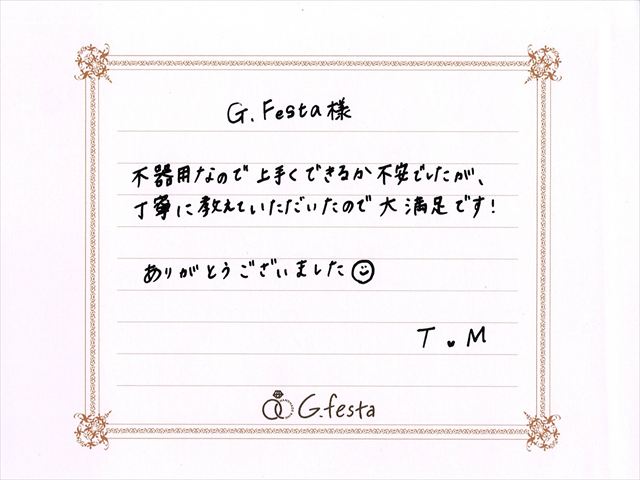 G. Festa様
不器用なので上手くできるか不安でしたが、
丁寧に教えていただいたので大満足です!
ありがとうございました☺
T ♥ M
G.festa